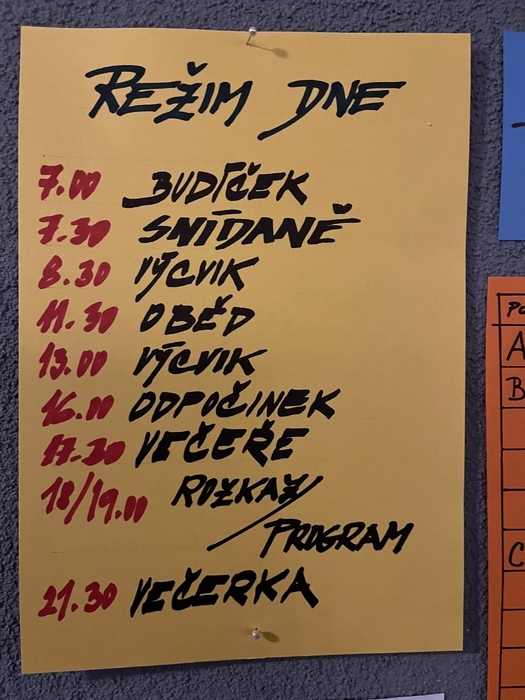 REŽIM DNE
7.00 BUDÍČEK
7.30 SNÍDANĚ
8.30 VÝCVIK
11.30 OBĚD
13.00 VÝCVIK
16.00 ODPOČINEK
17.30 VEČEŘE
18/19.00 ROZKAZY/
PROGRAM
21.30 VEČERKA
A
B
C